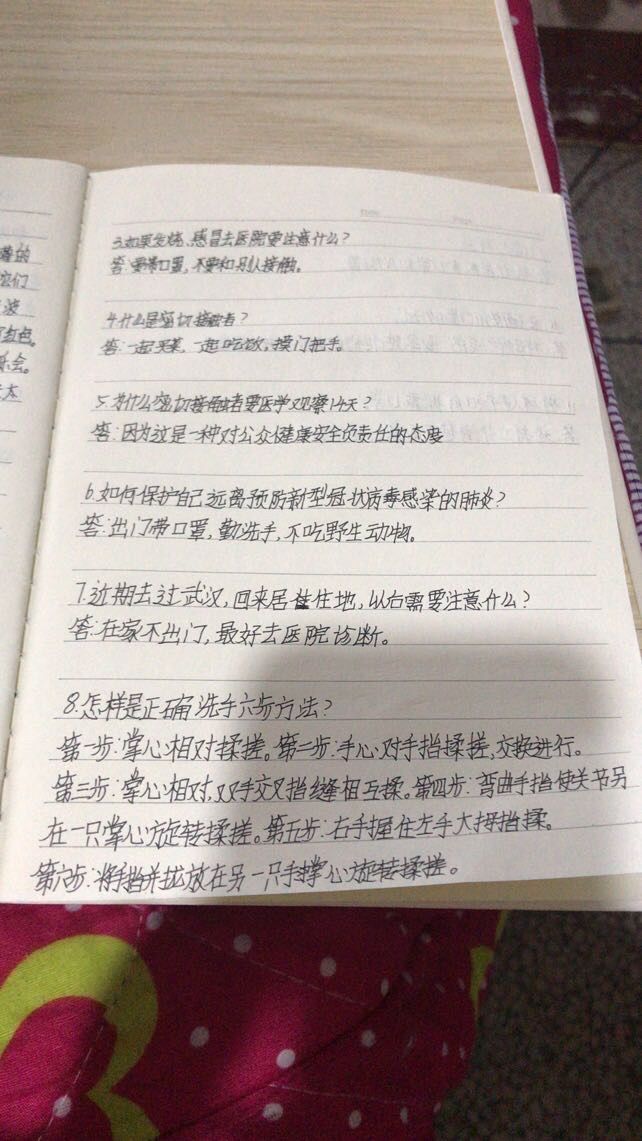 难的
它们
波
有红包。
乐会。
太太
3.如果发烧、感冒去医院要注意什么?
答:要带口罩,不要和别人接触。
4.什么是密切接触者?
答:一起买菜,一起吃饭,摸门把手。
5.为什么密切接触者要医学观察14天?
答:因为这是一种对公众健康安全负责任的态度
6.如何保护自己远离预防新型冠状病毒感染的肺炎?
答:出门带口罩,勤洗手,不吃野生动物。
7.近期去过武汉,回来居住地,以右需要注意什么?
答:在家不出门,最好去医院诊断。
8.怎样是正确洗手六步方法?
第一步:掌心相对揉搓。第二步:手心对手指揉搓,交换进行。
第三步:掌心相对,双手交叉指缝相互揉。第四步:弯曲手指使关节另
在一只掌心方旋转揉搓。第五步:右手握住左手大拇指揉。
第六步:将手指并拢放在另一只手掌心方旋转揉搓。